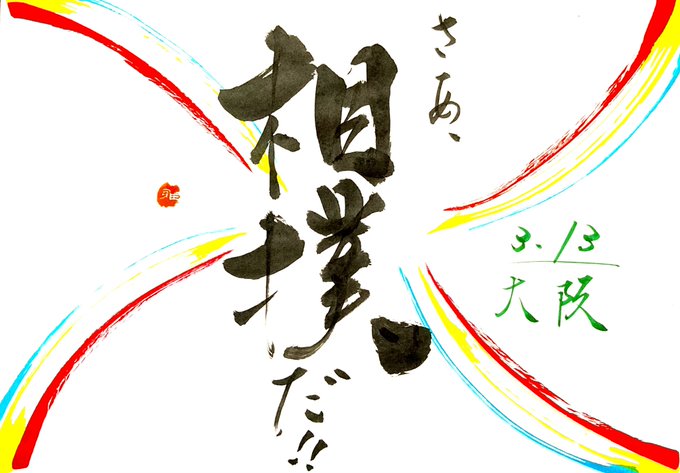 さあ、
相撲、だ!!
3.13
大阪